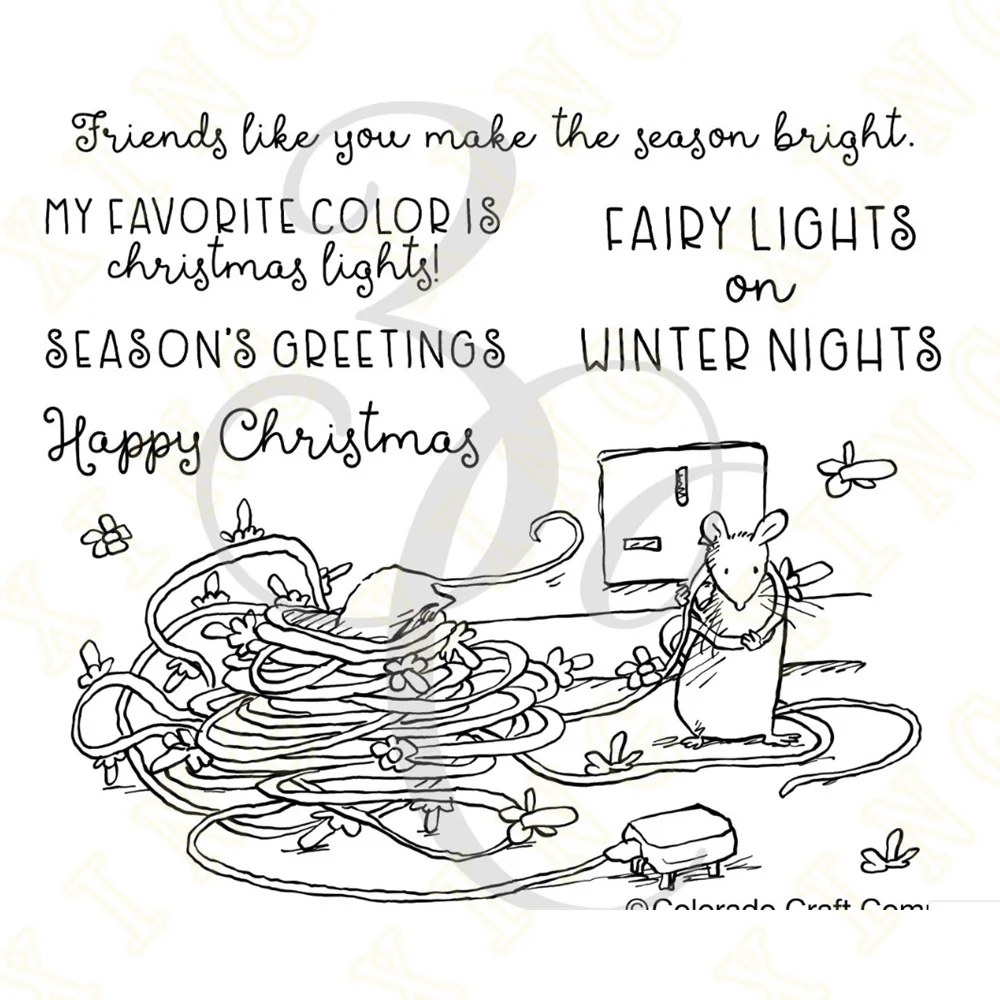 Friends like you make the season bright.
MY FAVORITE COLOR IS
christmas lights!
FAIRY LIGHTS
on
WINTER NIGHTS
SEASON'S GREETINGS
Happy Christmas
©Colorado Craft Com
XINGXING